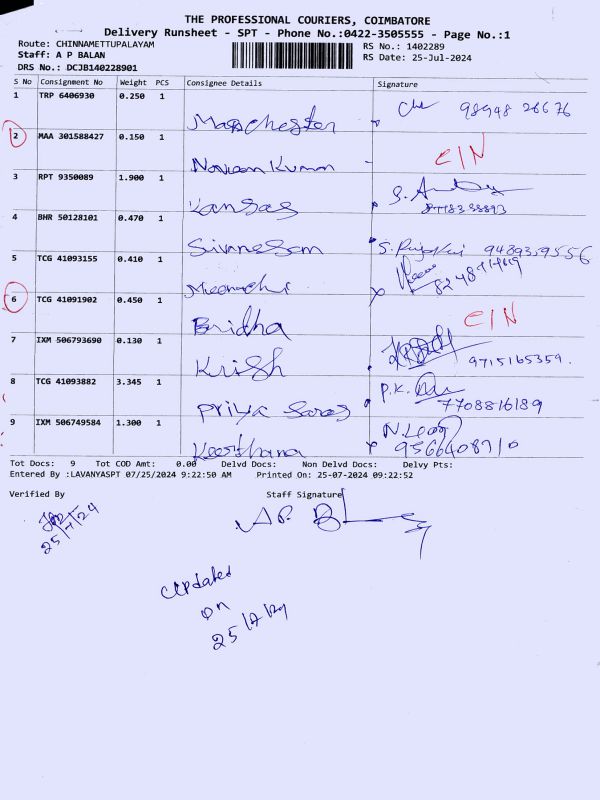 THE PROFESSIONAL COURIERS, COIMBATORE
Delivery Runsheet - SPT - Phone No.:0422-3505555 - Page No.:1
Route: CHINNAMETTUPALAYAM RS No.: 1402289
Staff: A P BALAN RS Date: 25-Jul-2024
DRS No.: DCJB140228901
S No Consignment No Weight PCS Consignee Details Signature
1 TRP 6406930 0.250 1 Manchester 98948 26676
2 MAA 301588427 0.150 1 Naveen Kumar C/N
3 RPT 9350089 1.900 1 Kansas
4 BHR 50128101 0.470 1 Sivanesan
5 TCG 41093155 0.410 1 Meenachi
6 TCG 41091902 0.450 1 Bridha C/N
7 IXM 506793690 0.130 1 Krish 9715165359.
8 TCG 41093882 3.345 1 Priya Saras P.K. 7708816189
9 IXM 506749584 1.300 1 Keerthana
Tot Docs: 9 Tot COD Amt: 0.00 Delvd Docs: Non Delvd Docs: Delvy Pts:
Entered By :LAVANYASPT 07/25/2024 9:22:50 AM Printed On: 25-07-2024 09:22:52
Verified By Staff Signature
25/7/24
Updated
on
25/7/24